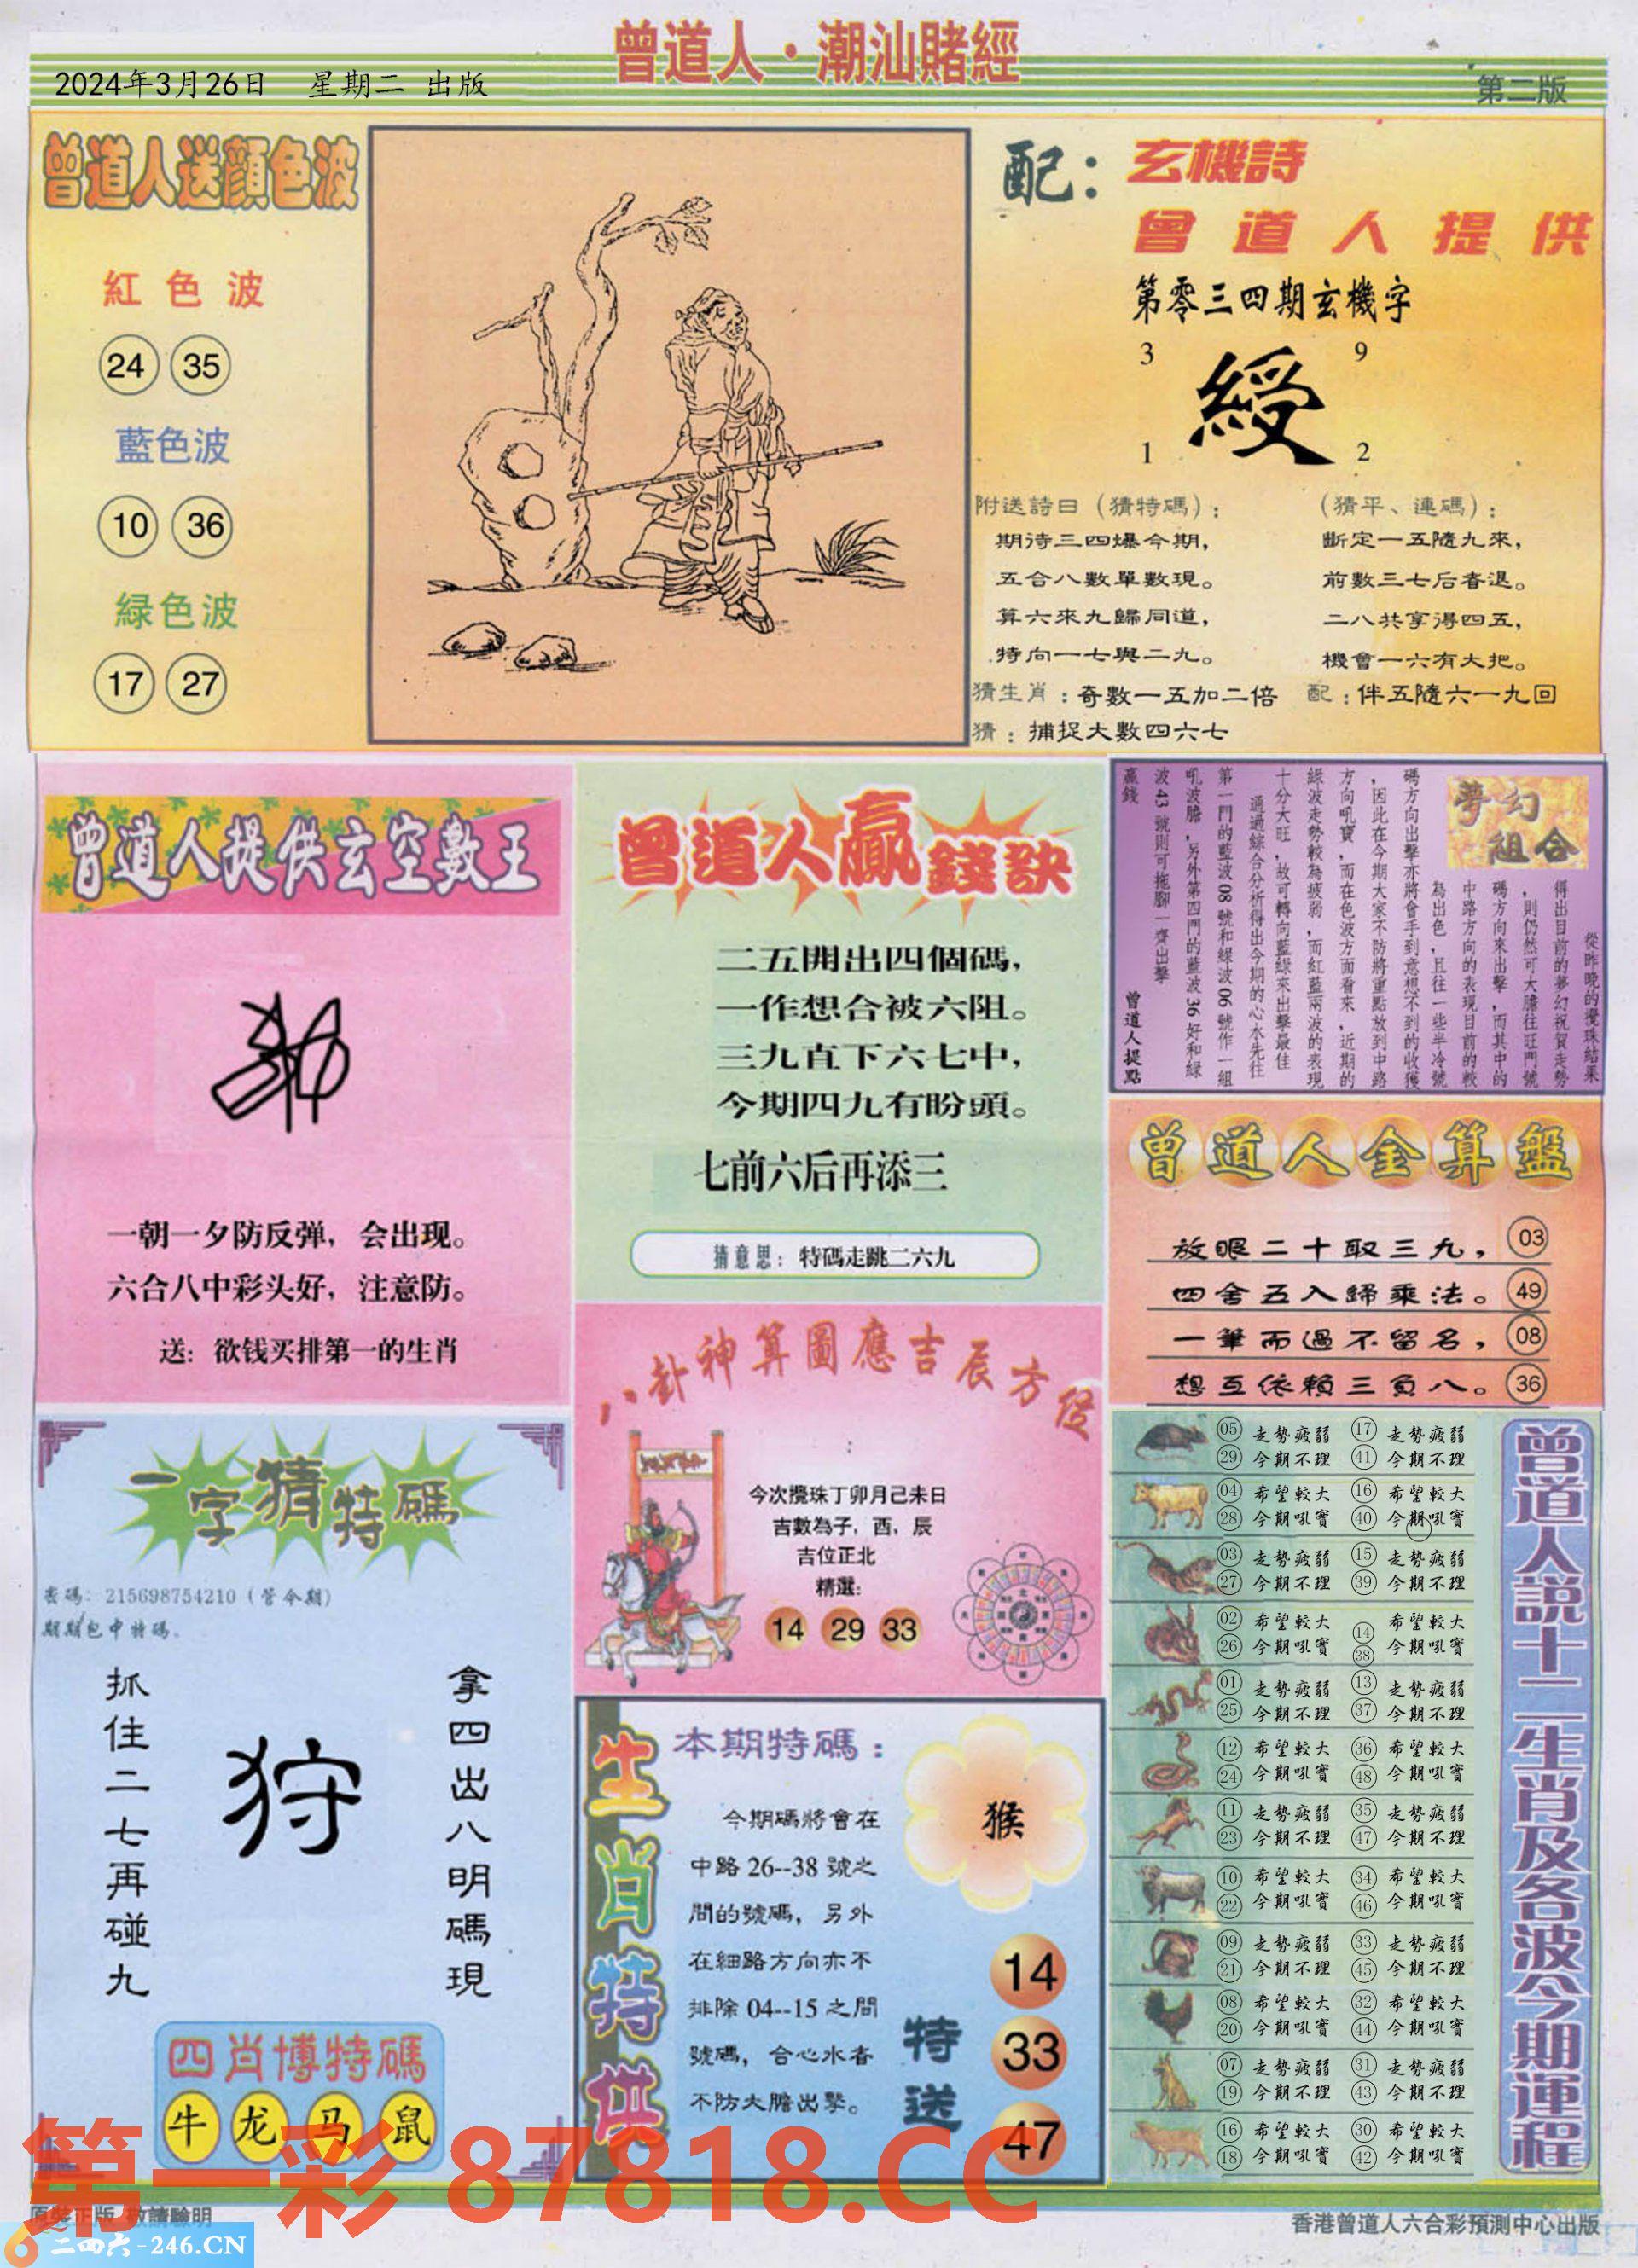 曾道人·潮汕賭經
2024年3月26日 星期二 出版
第二版
曾道人送顔色波
紅色波
24 35
藍色波
10 36
緑色波
17 27
配：玄機詩
曾道人提供
第零三四期玄機字
3 9
綬
1 2
附送詩日（猜特碼）：
期待三四爆今期，
五合八數單數現。
算六來九歸同道，
特向一七與二九。
猜生肖：奇數一五加二倍
猜：捕捉大數四六七
（猜平、連碼）：
斷定一五隨九來，
前數三七后者退。
二八共享得四五，
機會一六有大把。
配：伴五隨六一九回
曾道人提供玄空數王
一朝一夕防反弹，会出现。
六合八中彩头好，注意防。
送：欲钱买排第一的生肖
曾道人贏錢訣
二五開出四個碼，
一作想合被六阻。
三九直下六七中，
今期四九有盼頭。
七前六后再添三
猜意思：特碼走跳二六九
夢幻
組合
從昨晚的攪珠結果
得出目前的夢幻祝賀走勢
，則仍然可大膽往旺門號
碼方向來出擊，而其中的
中路方向的表現目前的較
為出色，且往一些半冷號
碼方向出擊亦將會手到意想不到的收獲
，因此在今期大家不防將重點放到中路
方向吼寶，而在色波方面看來，近期的
綠波走勢較為疲弱，而紅藍兩波的表現
十分大旺，故可轉向藍綠來出擊最佳
通過綜合分析得出今期的心水先往
第一門的藍波08號和綠波06號作一組
吼波膽，另外第四門的藍波36好和綠
波43號則可拖腳一齊出擊
贏錢
曾道人提點
曾道人金算盤
放眼二十取三九， 03
四舍五入歸乘法。 49
一筆而過不留名， 08
想互依賴三負八。 36
八卦神算圖應吉辰方從
今次攪珠丁卯月己未日
吉數為子，酉，辰
吉位正北
精選：
14 29 33
一字猜特碼
密碼：215698754210（管今期）
期期包中特碼。
抓住二七再碰九
狩
拿四出八明碼現
四肖博特碼
牛 龙 马 鼠
生肖特供
本期特碼：
猴
今期碼將會在
中路26--38號之
間的號碼，另外
在細路方向亦不
排除04--15之間
號碼，合心水者
不防大膽出擊。
特送
14
33
47
曾道人說十二生肖及各波今期運程
05 走勢疲弱 17 走勢疲弱
29 今期不理 41 今期不理
04 希望較大 16 希望較大
28 今期吼實 40 今期吼實
03 走勢疲弱 15 走勢疲弱
27 今期不理 39 今期不理
02 希望較大 14 希望較大
26 今期吼實 38 今期吼實
01 走勢疲弱 13 走勢疲弱
25 今期不理 37 今期不理
12 希望較大 36 希望較大
24 今期吼實 48 今期吼實
11 走勢疲弱 35 走勢疲弱
23 今期不理 47 今期不理
10 希望較大 34 希望較大
22 今期吼實 46 今期吼實
09 走勢疲弱 33 走勢疲弱
21 今期不理 45 今期不理
08 希望較大 32 希望較大
20 今期吼實 44 今期吼實
07 走勢疲弱 31 走勢疲弱
19 今期不理 43 今期不理
16 希望較大 30 希望較大
18 今期吼實 42 今期吼實
第一彩 87818.CC
原裝正版 敬請驗明
二四六-246.CN
香港曾道人六合彩預測中心出版